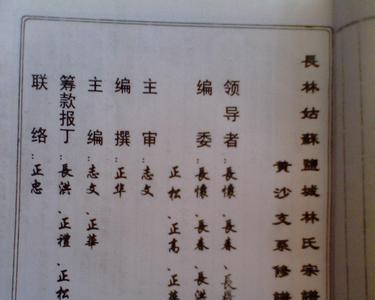 長林姑蘇鹽城林氏宗譜
黄沙支系修譜
领导者:長懷、長春、長
编委:長懷、長春、長洪
正松、正高、正華
主审:志文
编撰:正华
主编:志文、正華
筹款报丁:長洪、正禮、正松
联络:正忠